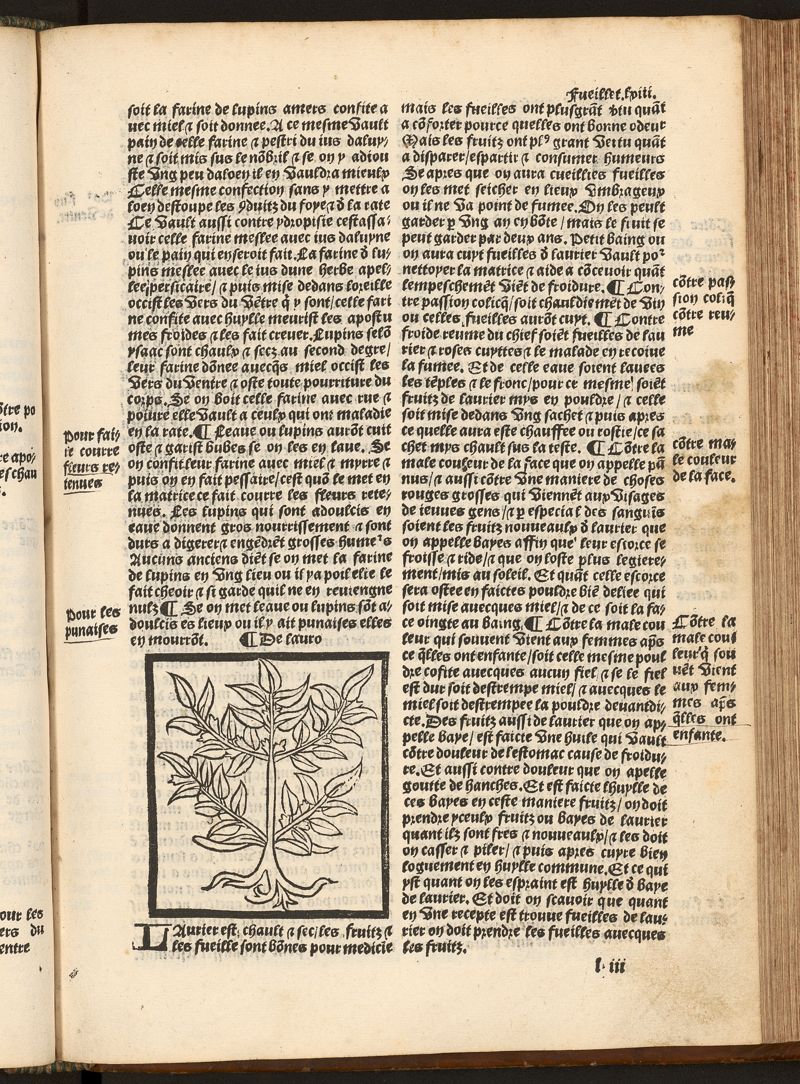 Fueillet.lxiii.
soit la farine de lupins amers confite a
uec miel ⁊ soit donnee. A ce mesme vault
pain de celle farine ⁊ pestri du ius daluy⸗
ne ⁊ soit mis sus le nõbril ⁊ se on y adiou
ste vng peu daloen il en vauldra mieulx
Celle mesme confection sans y mettre a
loen destoupe les ꝯduitz du foye ⁊ d̃ la rate
Ce vault aussi contre ydropisie cestassa⸗
uoir celle farine meslee auec ius daluyne
ou le pain qui en seroit fait. La farine d̃ lu⸗
pins meslee auec le ius dune herbe apel⸗
lee persicaire/ ⁊ puis mise dedans loreille
occist les vers du vẽtre q̃ y sont/celle fari
ne confite auec huylle meurist les apostu
mes froides ⁊ les fait creuer. Lupins selõ
ysaac sont chaulx ⁊ secz au second degre/
leur farine dõnee auecq̃s miel occist les
vers du ventre ⁊ oste toute pourriture du
corps. Se on boit celle farine auec rue ⁊
poiure elle vault a ceulx qui ont maladie
en la rate. ¶ Leaue ou lupins aurõt cuit
oste ⁊ garist bubes se on les en laue. Se
on confit leur farine auec miel ⁊ myrre ⁊
puis on en fait pessaire/cest quõ le met en
la matrice ce fait courre les fleurs rete⸗
nues. Les lupins qui sont adoulcis en
eaue donnent gros nourrissement ⁊ sont
durs a digerer ⁊ engẽdrẽt grosses humeᷣs
Aucuns anciens diẽt se on met la farine
de lupins en vng lieu ou il ya poil elle le
fait cheoir ⁊ si garde quil ne en reuiengne
nulz ¶ Se on met leaue ou lupins sõt a⸗
doulcis es lieux ou il y ait punaises elles
en mourrõt. ¶ De lauro
LAurier est chault ⁊ sec/les fruitz ⁊
les fueille sont bõnes pour medicie
Pour fai⸗
re courre
fleurs re⸗
tenues
Pour les
punaises
mais les fueilles ont plusgrãt v̾tu quãt
a cõforter pource quelles ont bonne odeur
Mais les fruitz ont plꝰ grant vertu quãt
a disparer/espartir ⁊ consumer humeurs
Se apres que on aura cueillies fueilles
on les met seicher en lieux vmbrageux
ou il ne va point de fumee. On les peult
garder p̱ vng an cy bõte/mais le fruit se
peut garder par deux ans. Petit baing ou
on aura cuyt fueilles d̃ laurier vault poᷣ
nettoyer la matrice ⁊ aide a cõceuoir quãt
lempeschemẽt viẽt de froidure. ¶ Con⸗
tre passion colicq̃/soit chauldiemẽt de vin
ou celles fueilles aurõt cuyt. ¶ Contre
froide reume du chief soiẽt fueilles de lau
rier ⁊ roses cuyttes ⁊ le malade en recoiue
la fumee. Et de celle eaue soient lauees
les tẽples ⁊ le fronc/pour ce mesme soiẽt
fruitz de laurier mys en pouldre/ ⁊ celle
soit mise dedans vng sachet ⁊ puis apres
ce quelle aura este chauffee ou rostie/ce sa
chet mys chault sus la teste. ¶ Cõtre la
male couleur de la face que on appelle pã
nus/ ⁊ aussi cõtre vne maniere de choses
rouges grosses qui viennẽt aux visages
de ieunes gens/ ⁊ p̱ especial des sanguis
soient les fruitz nouueaulx d̃ laurier que
on appelle bayes affin que leur escorce se
froisse ⁊ ride/ ⁊ que on loste plus legiere⸗
ment/mis au soleil. Et quãt celle escorce
sera ostee en faictes pouldre biẽ deliee qui
soit mise auecques miel/ ⁊ de ce soit la fa⸗
ce oingte au baing. ¶ Cõtre la male cou
leur qui souuent vient aux femmes ap̃s
ce q̃lles ont enfante/soit celle mesme poul
dre cõfite auecques aucun fiel ⁊ se le fiel
est dur soit destrempe miel/ ⁊ auecques le
miel soit destrempee la pouldre deuantdi⸗
cte. Des fruitz aussi de laurier que on ap⸗
pelle baye/est faicte vne huile qui vault
cõtre douleur de lestomac cause de froidu⸗
re. Et aussi contre douleur que on apelle
goutte de hanches. Et est faicte lhuylle de
ces bayes en ceste maniere fruitz/on doit
prendre yceulx fruitz ou bayes de laurier
quant ilz sont fres ⁊ nouueaulx/ ⁊ les doit
on casser ⁊ piler/ ⁊ puis apres cuyre bien
loguement en huylle commune. Et ce qui
yst quant on les espraint est huylle d̃ baye
de laurier. Et doit on scauoir que quant
en vne recepte est trouue fueilles de lau⸗
rier on doit prendre les fueilles auecques
les fruitz.
cõtre pas⸗
sion coliq̃
cõtre reu⸗
me
cõtre ma⸗
le couleur
de la face.
Cõtre la
male coul
leur q̃ sou
uẽt vient
aux fem⸗
mes ap̃s
q̃lles ont
enfante.
l iii